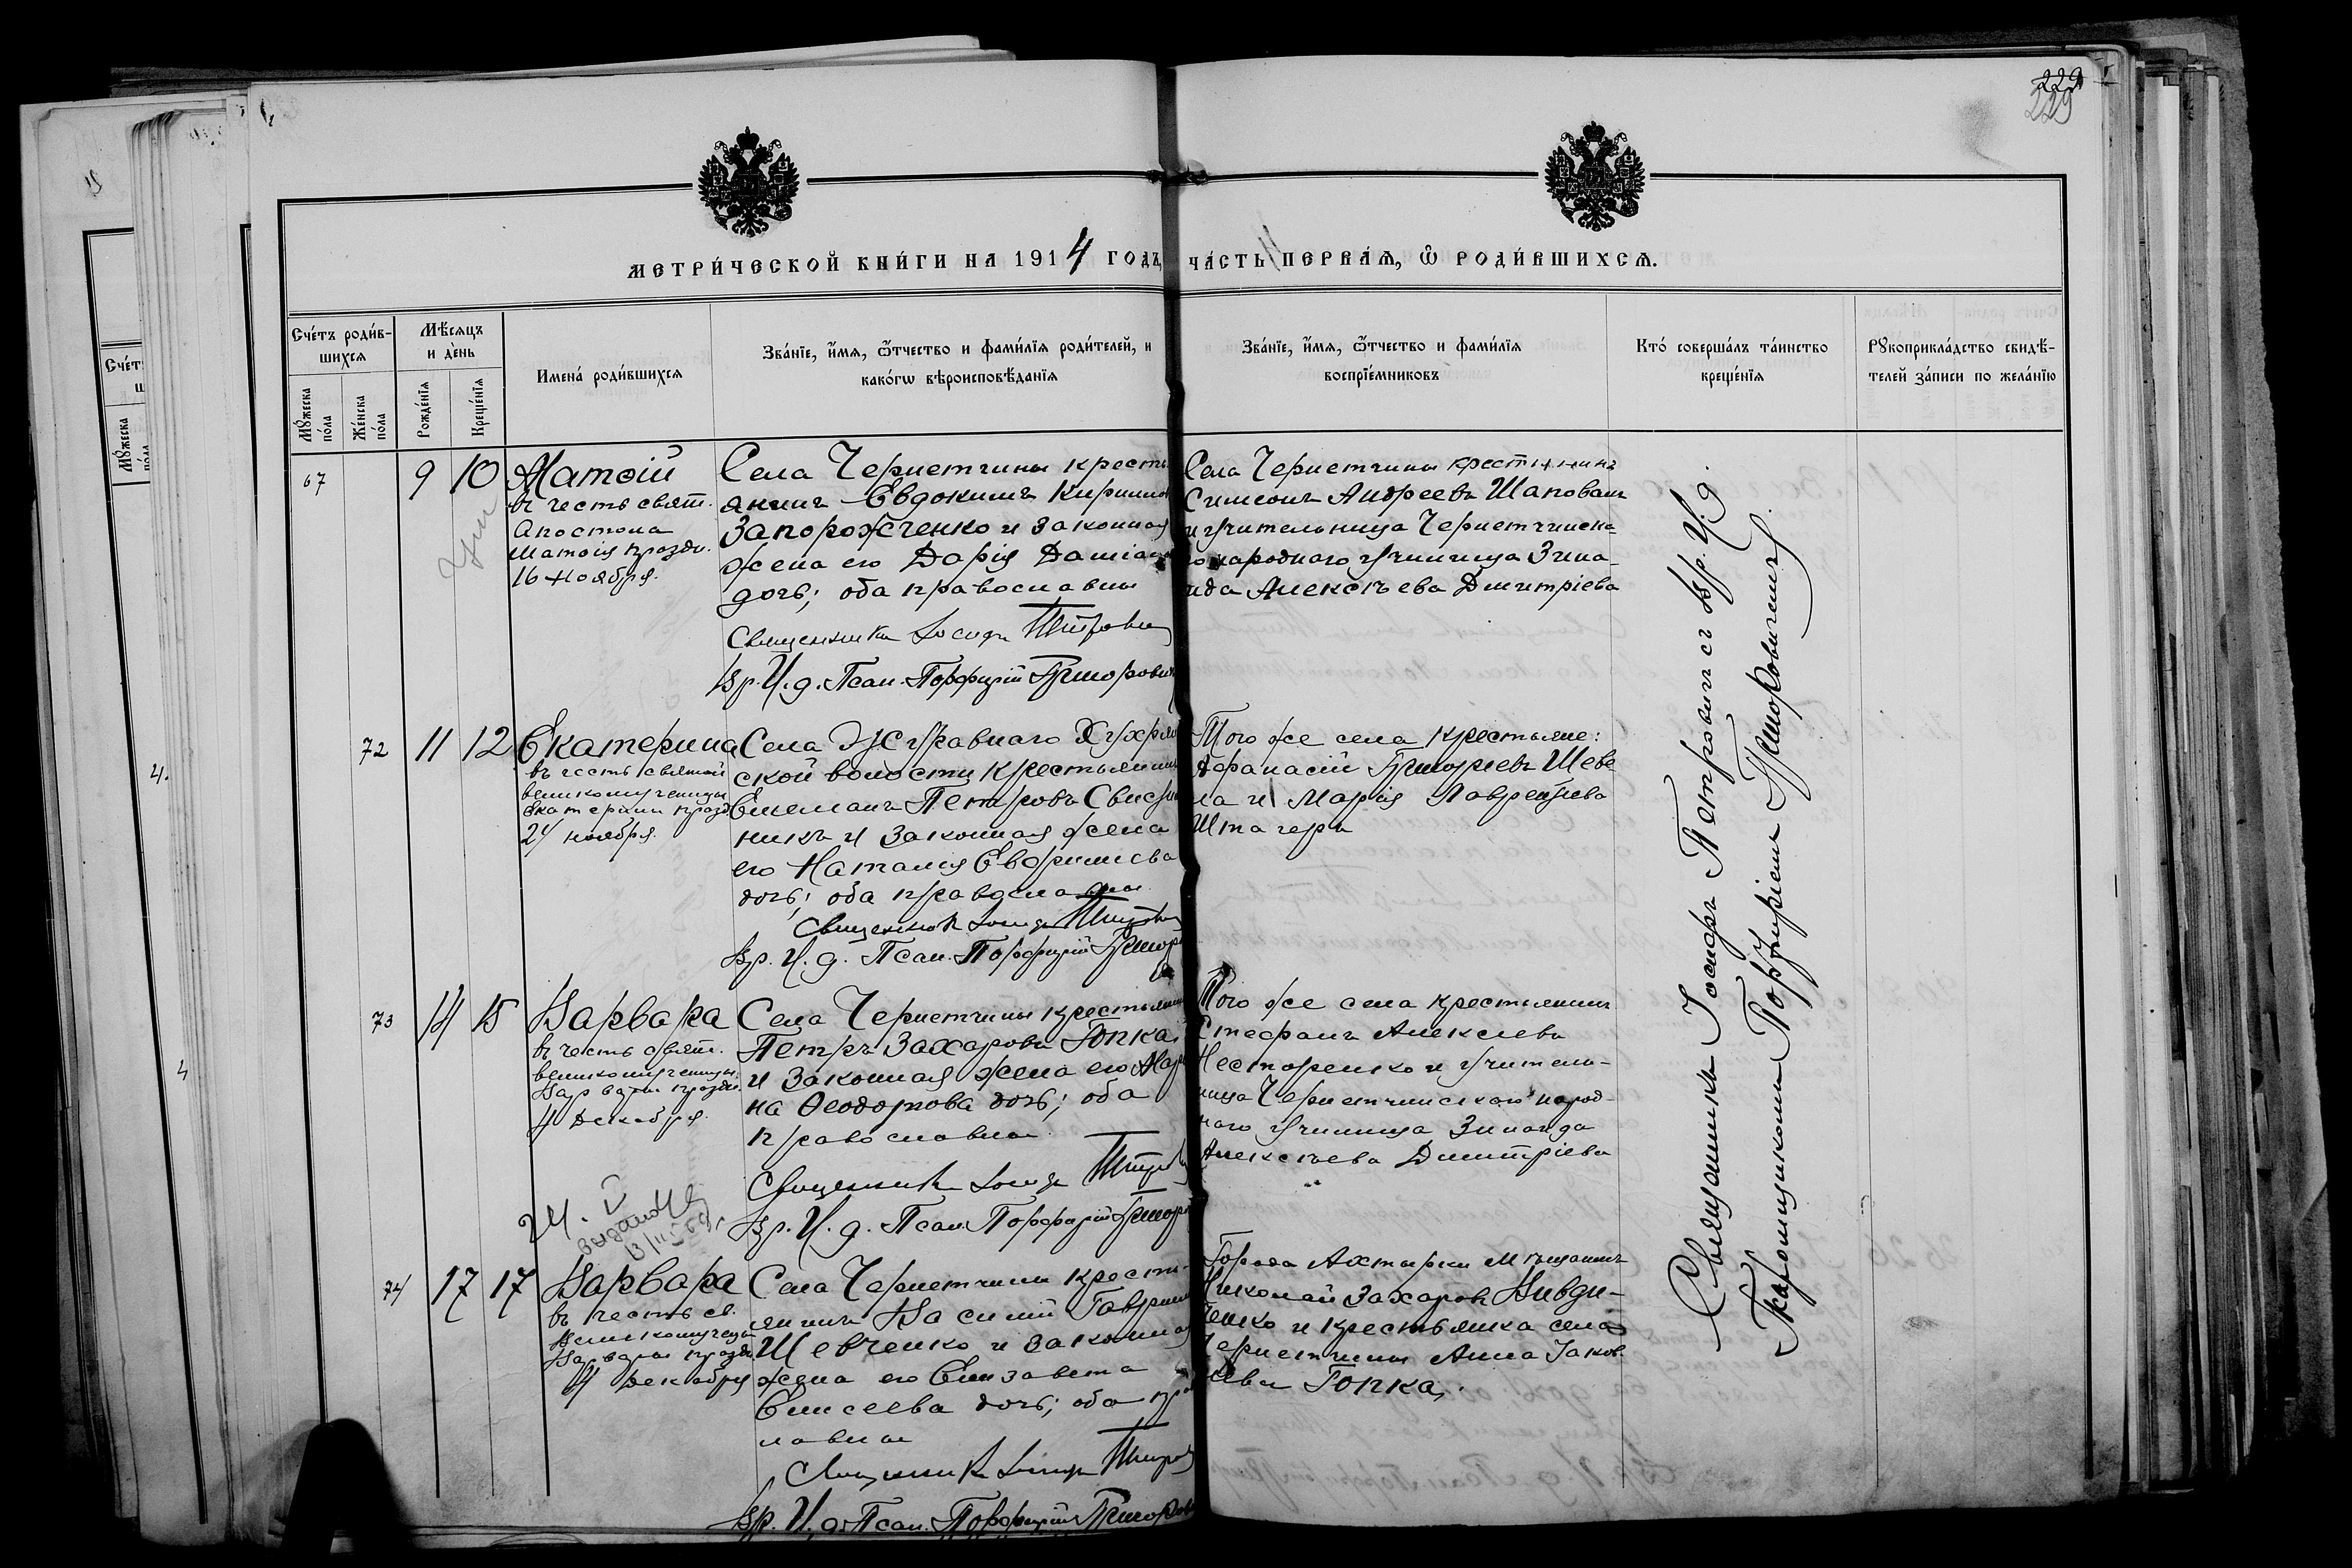 229
229
МЕТРИ́ЧЕСКОЙ КНИ́ГИ НА 1914 ГОДЪ, ЧА́СТЬ ПЕРВАѦ, Ѡ РОДИ́ВШИХСѦ.
Счéтъ роди́в-
шихсѧ
Мꙋ́жеска по́ла
Жéнска по́ла
Мѣ́сѧцъ
и дéнь
Рождéнїѧ
Крещéнїѧ
Именá роди́вшихсѧ
Звáнїе, и́мѧ, ѻ́тчество и фами́лїѧ роди́телей, и
како́гѡ вѣроисповѣ́данїѧ
Звáнїе, и́мѧ, ѻ́тчество и фами́лїѧ
воспрїéмниковъ
Кто́ совершáлъ тáинство
крещéнїѧ
Рꙋкоприклáдство свидѣ́-
телей зáписи по желáнїю
67
9 10
Матѳій
въ честь свят.
Апостола
Матѳія праздн.
16 ноября.
Села Чернетчины кресть
янинъ Евдокимъ Кирилло
Запорожченко и законная
жена его Дарія Даміано
дочь; оба православны
Священникъ Іосифъ Петрович
Вр. И. д. Псал. Порфирій Григорович
Села Чернетчины крестьянинъ
Симеонъ Андреевъ Шаповалъ
и учительница Чернетчинска-
го народнаго училища Зина-
ида Алексѣева Дмитріева
72
11 12
Екатерина
въ честь святой
великомученицы
Екатерины празд.
24 ноября.
Села Журавнаго Хухрян
ской волости крестьянинъ
Емеліанъ Петровъ
никъ и законная жена
его Наталія
дочь; оба православные
Священникъ Іосифъ Петрович
Вр. И. д. Псал. Порфирій Григоро
Того же села крестьяне:
Аѳанасій Григорьевъ Шеве
ла и Марія Лаврентьева
73
14 15
Варвара
въ честь свят.
великомученицы
Варвары праздн.
4 Декабря.
Села Чернетчины крестьянинъ
Петръ Захаровъ Гопка,
и законная жена его Мар
на Ѳеодорова дочь; оба
православные.
Священникъ Іосифъ Петров
Вр. И. д. Псал. Порфирій Григор
Того же села крестьянинъ
Стефанъ Алексѣевъ
Нестеренко и учитель-
ница Чернетчинскаго народ-
наго училища Зинаида
Алексѣева Дмитріева
74
17 17
Варвара
въ честь св.
Великомученицы
Варвары праздн.
4 декабря
Села Чернетчины кресть-
янинъ Василій Гаврилов
Шевченко и законная
жена его Елизавета
Елисеева дочь; оба пра
лавные
Священникъ Іосифъ Петров
Вр. И. д. Псал. Порфирій Григоров
Города Ахтырки мѣщанинъ
Николай Захаровъ Вивди-
ченко и крестьянка села
Чернетчины Анна Іаков
лева Гопка.
Священникъ Іосифъ Петровичъ съ Вр. И. д.
Псаломщикомъ Порфиріемъ Григоровичемъ.